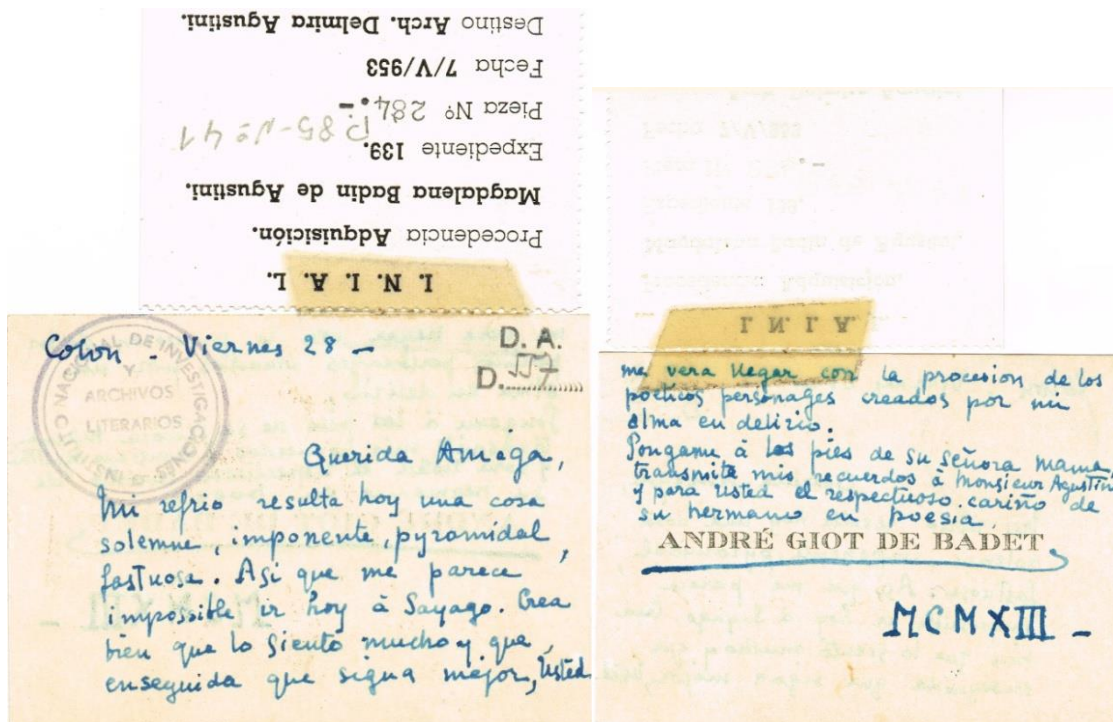 I. N. I. A. L.
Procedencia Adquisición.
Magdalena Badin de Agustini.
Expediente 139.
Pieza Nº 284.-
P. 85-Nº 41
Fecha 7/V/953
Destino Arch. Delmira Agustini.
INSTITUTO NACIONAL DE INVESTIGACIONES
Y
ARCHIVOS
LITERARIOS
D. A.
D. 557
Colon - Viernes 28 -
Querida Amiga,
Mi refrio resulta hoy una cosa
solemne, imponente, pyramidal,
fastuosa. Asi que me parece
impossible ir hoy à Sayago. Crea
bien que lo siento mucho y que,
enseguida que sigua mejor, Usted
me vera llegar con la procesion de los
poeticos personages creados por mi
alma en delirio.
Pongame à los pies de su señora mama,
transmita mis recuerdos à Monsieur Agustini
y para usted el respectuoso cariño de
su hermano en poesia.
ANDRÉ GIOT DE BADET
MCMXIII -